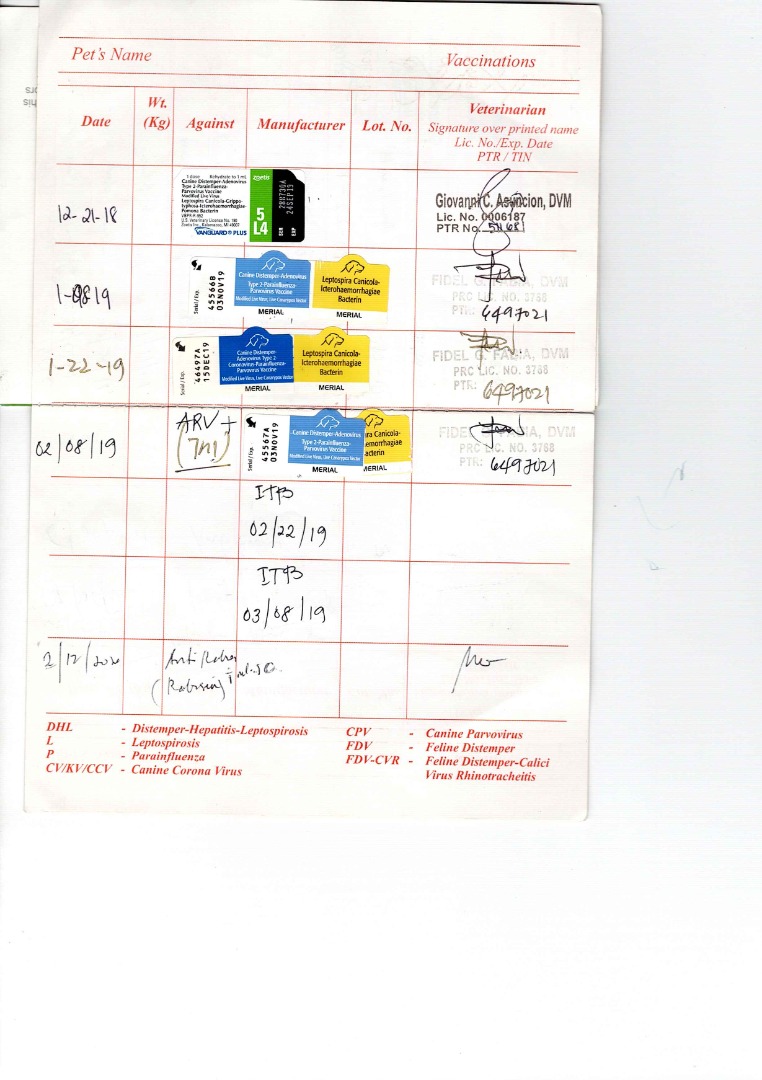 Pet's Name Vaccinations
Date Wt. (Kg) Against Manufacturer Lot. No. Veterinarian
Signature over printed name
Lic. No./Exp. Date
PTR / TIN
12-21-18
1 dose Rehydrate to 1 mL
Canine Distemper-Adenovirus
Type 2-Parainfluenza-
Parvovirus Vaccine
Modified Live Virus
Leptospira Canicola-Grippo-
typhosa-Icterohaemorrhagiae-
Pomona Bacterin
VANGUARD® PLUS
zoetis
5
L4
SER
EXP 24SEP19
Giovanni C. Asuncion, DVM
Lic. No. 0006187
PTR No.
19
Serial / Exp.
45566B
03NOV19
Canine Distemper-Adenovirus
Type 2-Parainfluenza-
Parvovirus Vaccine
Modified Live Virus, Live Canarypox Vector
MERIAL
Leptospira Canicola-
Icterohaemorrhagiae
Bacterin
MERIAL
FIDEL G. FABIA, DVM
PRC LIC. NO. 3768
PTR: 6497021
1-22-19
Serial / Exp.
46497A
15DEC19
Canine Distemper-
Adenovirus Type 2-
Coronavirus-Parainfluenza-
Parvovirus Vaccine
Modified Live Virus, Live Canarypox Vector
MERIAL
Leptospira Canicola-
Icterohaemorrhagiae
Bacterin
MERIAL
FIDEL G. FABIA, DVM
PRC LIC. NO. 3768
PTR: 6497021
02/08/19
ARV +
(7n1)
Serial / Exp.
45567A
03NOV19
Canine Distemper-Adenovirus
Type 2-Parainfluenza-
Parvovirus Vaccine
Modified Live Virus, Live Canarypox Vector
MERIAL
ra Canicola-
emorrhagiae
acterin
MERIAL
PRC LIC. NO. 3768
PTR: 6497021
ITB
02/22/19
ITB
03/08/19
Anti Rabies
(Rabisin)
DHL - Distemper-Hepatitis-Leptospirosis
L - Leptospirosis
P - Parainfluenza
CV/KV/CCV - Canine Corona Virus
CPV - Canine Parvovirus
FDV - Feline Distemper
FDV-CVR - Feline Distemper-Calici
Virus Rhinotracheitis